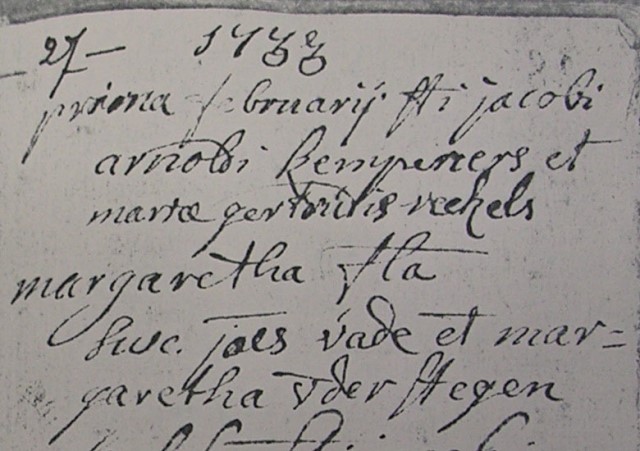 - 27 - 1733
prima februarij fti jacobi
arnoldi Kempeneers et
mariæ gertrudis veekels
margaretha fta
Susc. joes vade et mar=
garetha vder stegen